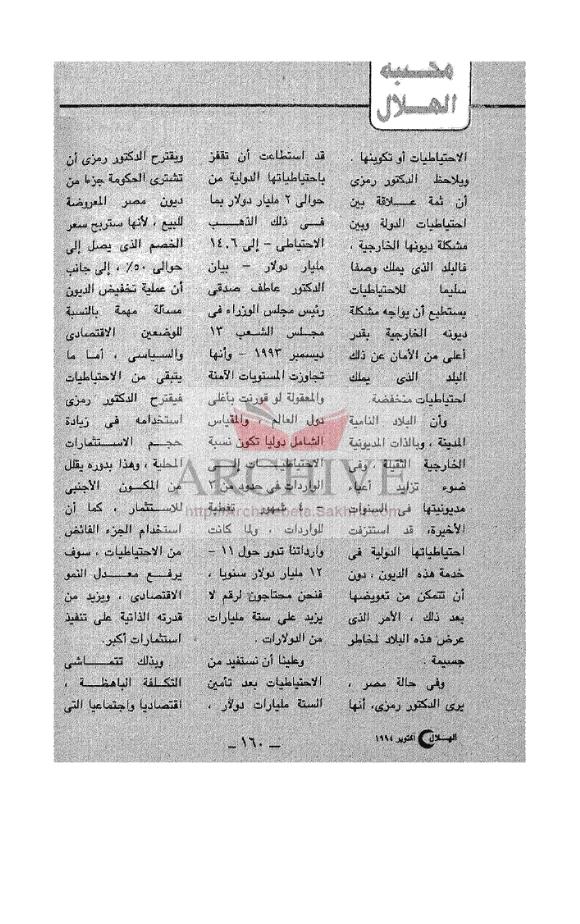 مكتبة
الهلال
الاحتياطيات أو تكوينها .
ويلاحظ الدكتور رمزى
أن ثمة علاقة بين
احتياطيات الدولة وبين
مشكلة ديونها الخارجية ،
فالبلد الذى يملك وصفا
سليما للاحتياطيات
يستطيع أن يواجه مشكلة
ديونه الخارجية بقدر
أعلى من الأمان عن ذلك
البلد الذى يملك
احتياطيات منخفضة.
وأن البلاد النامية
المدينة ، وبالذات المديونية
الخارجية الثقيلة ، وفى
ضوء تزايد أعباء
مديونيتها فى السنوات
الأخيرة، قد استنزفت
احتياطياتها الدولية فى
خدمة هذه الديون ، دون
أن تتمكن من تعويضها
بعد ذلك ، الأمر الذى
عرض هذه البلاد لمخاطر
جسيمة .
وفى حالة مصر ،
يرى الدكتور رمزى، أنها
قد استطاعت أن تقفز
باحتياطياتها الدولية من
حوالى ٢ مليار دولار بما
فى ذلك الذهب
الاحتياطى – إلى ١٤.٦
مليار دولار – بيان
الدكتور عاطف صدقى
رئيس مجلس الوزراء فى
مجلس الشعب ١٣
ديسمبر ١٩٩٣ – وأنها
تجاوزت المستويات الآمنة
والمعقولة لو قورنت بأغلى
دول العالم ، والمقياس
الشامل دوليا تكون نسبة
الاحتياطيات إلى
الواردات فى حدود ٣
شهور تغطية
للواردات ، ولما كانت
وارداتنا تدور حول ١١ –
١٢ مليار دولار سنويا ،
فنحن محتاجون لرقم لا
يزيد على ستة مليارات
من الدولارات .
وعلينا أن نستفيد من
الاحتياطيات بعد تأمين
الستة مليارات دولار ،
ويقترح الدكتور رمزى أن
تشترى الحكومة جزءا من
ديون مصر المعروضة
للبيع ، لأنها ستربح سعر
الخصم الذى يصل إلى
حوالى ٥٠٪ ، إلى جانب
أن عملية تخفيض الديون
مسألة مهمة بالنسبة
للوضعين الاقتصادى
والسياسى ، أما ما
يتبقى من الاحتياطيات
فيقترح الدكتور رمزى
استخدامه فى زيادة
حجم الاستثمارات
المحلية ، وهذا بدوره يقلل
من المكون الأجنبى
للاستثمار ، كما أن
استخدام الجزء الفائض
من الاحتياطيات ، سوف
يرفع معدل النمو
الاقتصادى ، ويزيد من
قدرته الذاتية على تنفيذ
استثمارات أكبر.
وبذلك تتماشى
التكلفة الباهظة ،
اقتصاديا واجتماعيا التى
ARCHIVE
الهلال أكتوبر ١٩٩٤
– ١٦٠ –